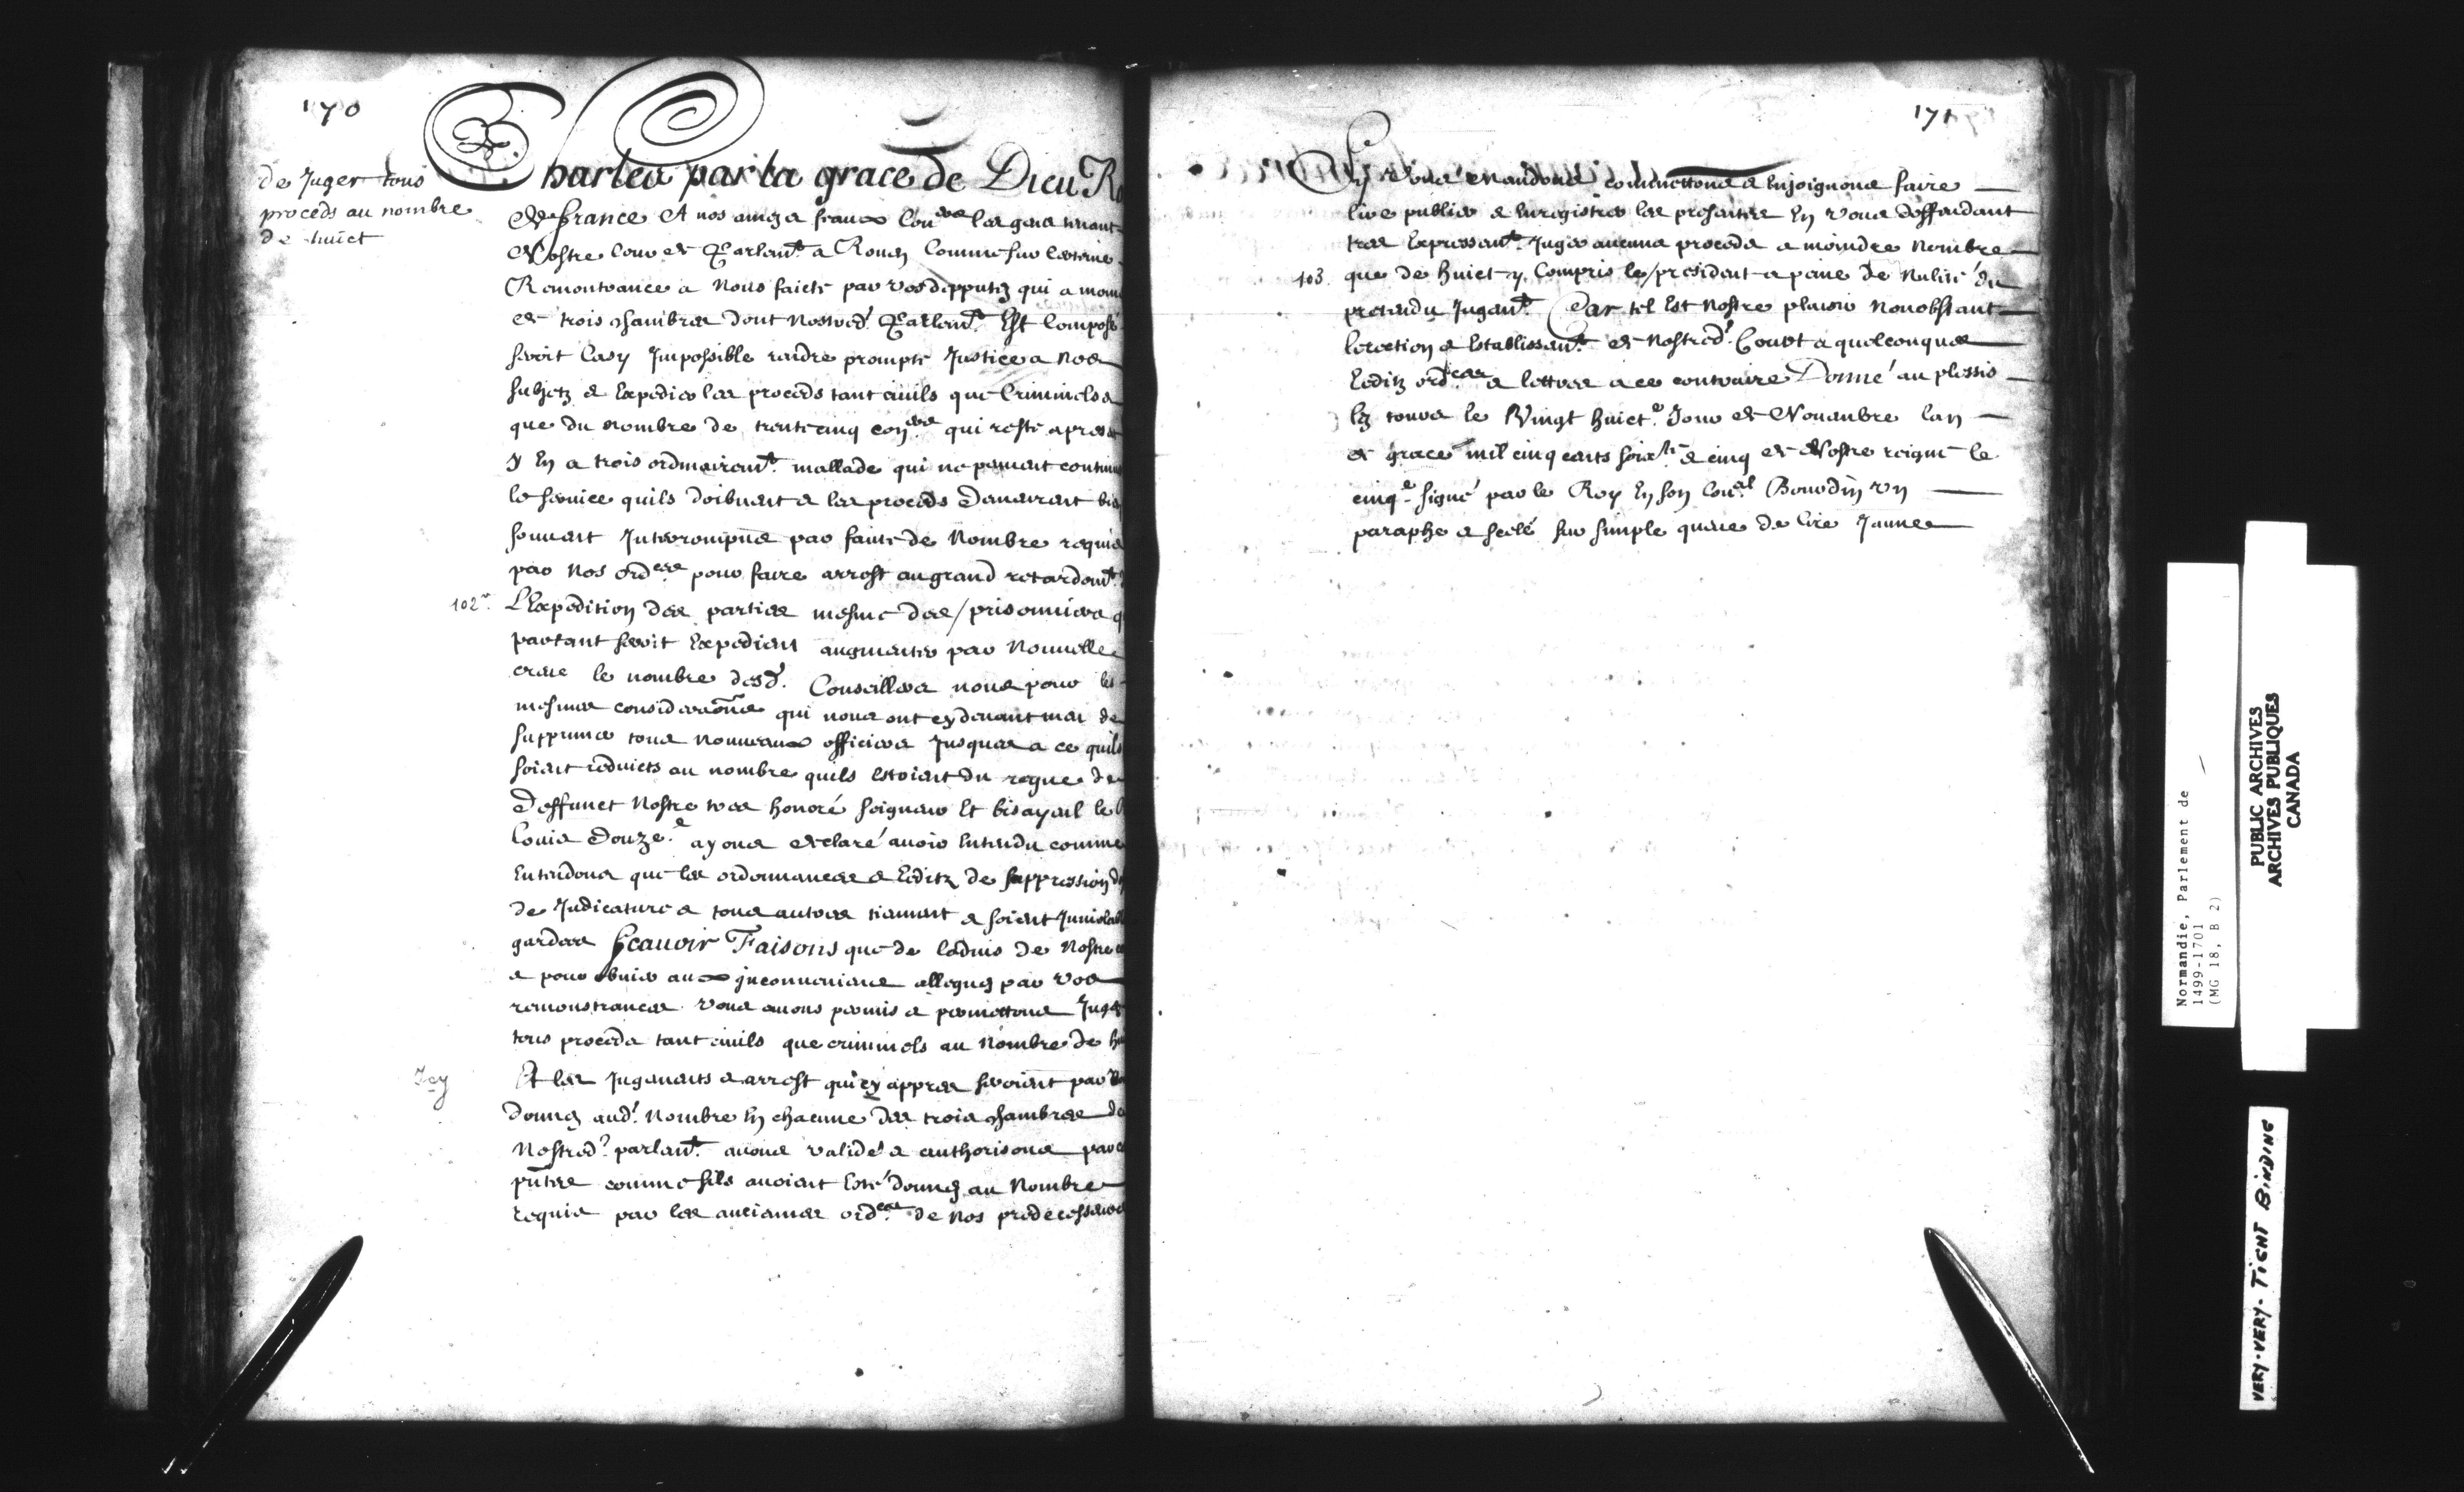 170
de Juger tous
proceds au nombre
de huict
Charles par la grace de Dieu Ro
de france A nos amez & feaux Con.ers les gens tenant
Nostre Cour de Parlem.t a Rouen Comme sur certaine
Remontrance a Nous faicte par vos depputez qui a moins
de trois chambres dont nostred. Parlem.t Est Composé
seroit Casy Impossible rendre prompte Justice a Nos
subjetz & Expedier les proceds tant civils que Criminels &
que du nombre de trente cinq con.ers qui reste apres
y En a trois ordinairem.t mallade qui ne peuvent continu
le service quils doibvent & les proceds Demeurent bie
souvent Interrompus par faute de Nombre requis
par Nos ord.ces pour faire arrest au grand retardem.t d
102 r.
L'Expedition des parties mesme des / prisonniers q
partant seroit Expedient augmenter par Nouvelle
creue le nombre desd. Conseillers nous pour les
mesmes considera.ons qui nous ont cy devant meu de
supprimer tous nouveaux officiers Jusques a ce quils
soient reduicts au nombre quils estoient du regne de
Deffunct Nostre tres honoré seigneur Et bisayeul le
Louis Douze.e ayons declaré avoir Entendu comme
Entendons que les ordonnances & Editz de suppression d
de Judicature & tous autres tiennent & soient Inviolabl
gardees Scavoir Faisons que de ladvis de Nostre c
& pour obvier aux inconveniens alleguez par vos
remonstrances vous avons permis & permettons Juger
tous proceds tant civils que criminels au Nombre de hu
Icy
Et les Jugements & arrest qui cy appres seroient par v
donnez aud. Nombre En chacune des trois chambres de
Nostred. parlem.t avons validé & authorisons par c
pntes comme sils avoient Esté donnez au Nombre
requis par les anciennes ord.ces de Nos predecesseurs
171
Sy vous mandons commettons & Enjoignons faire
lire publier & Enregistrer les presentes En vous deffendant
tres Expressem.t Juger aucuns proceds a moindre Nombre
103
que de huict y Compris le / president a peine de Nulité du
pretendu Jugem.t Car tel Est Nostre plaisir Nonobstant
lerection & Establissem.t de Nostred. Court & quelconques
Editz ord.ces & lettres a ce contraire Donné au plessis
lez tours le Vingt huict.e Jour de Novembre lan
de grace mil cinq cents soix.te & cinq et de Nostre reigne le
cinq.e signé par le Roy En son Con.el Bourdin un
paraphe & scelé sur simple queue de cire Jaune
Normandie, Parlement de
1499-1701
(MG 18, B 2)
PUBLIC ARCHIVES
ARCHIVES PUBLIQUES
CANADA
VERY-VERY-TIGHT BINDING